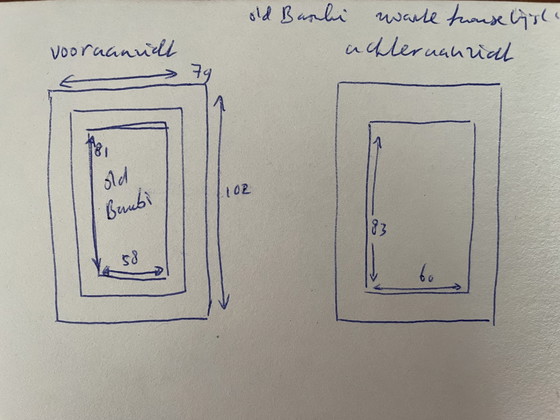 old Bambi zwarte franse lijst
vooraanzicht
achteraanzicht
79
81
old
Bambi
102
58
83
60